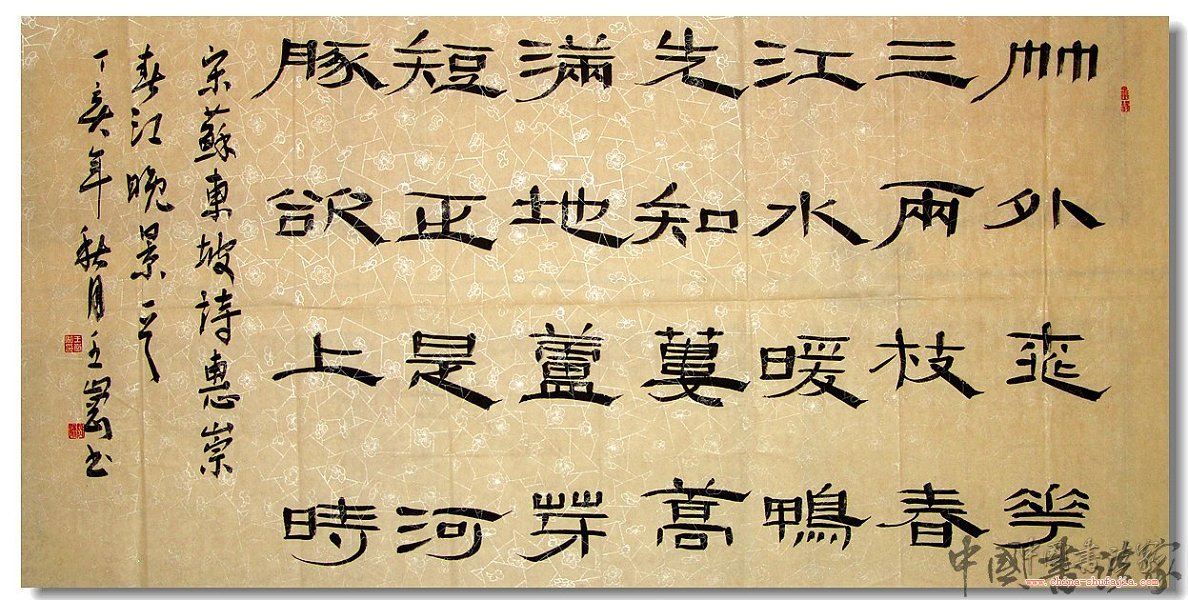 竹外桃花
三兩枝春
江水暖鴨
先知蔞蒿
滿地蘆芽
短正是河
豚欲上時
宋蘇東坡詩惠崇
春江晚景一首
丁亥年秋月王嵩书
中國書法家
www.china-shufajia.com